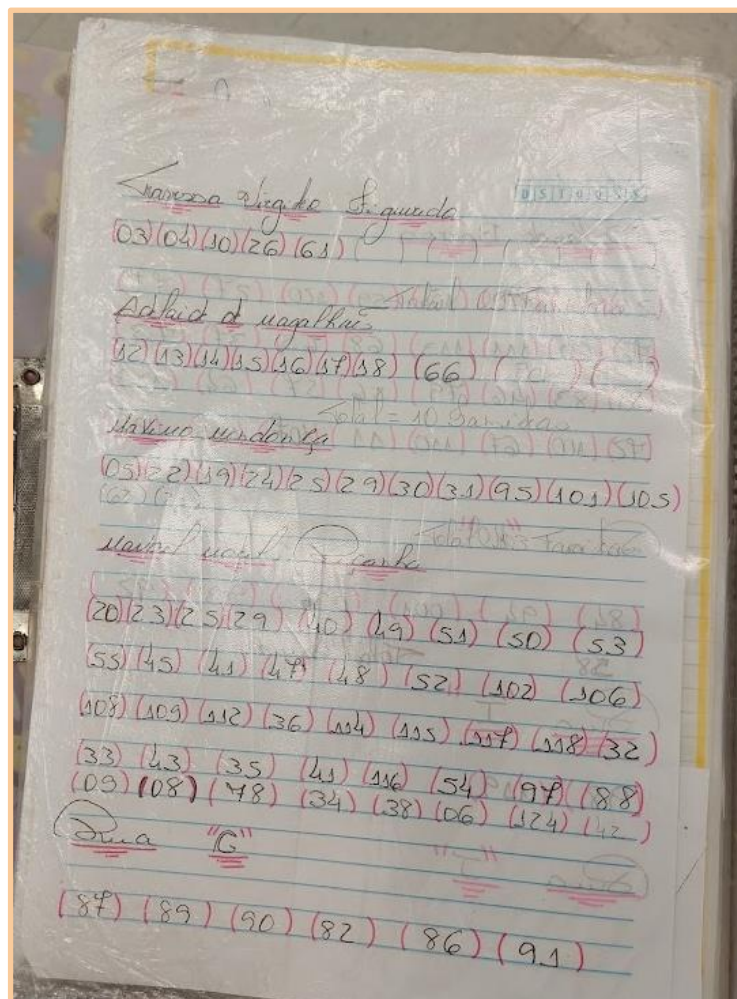 Travessa Virgilio Figueredo
(03) (04) (10) (26) (61)
Adelaid d Magalhães
(12) (13) (14) (15) (16) (17) (18) (66)
Maximo mendonça
(05) (22) (19) (24) (25) (29) (30) (31) (95) (101) (105)
Manoel
(20) (23) (25) (29) (40) (49) (51) (50) (53)
(55) (45) (41) (47) (48) (52) (102) (106)
(108) (109) (112) (36) (114) (115) (117) (118) (32)
(33) (43) (35) (41) (116) (54) (97) (88)
(09) (08) (78) (34) (38) (06) (124) (42)
Rua "G"
(87) (89) (90) (82) (86) (91)